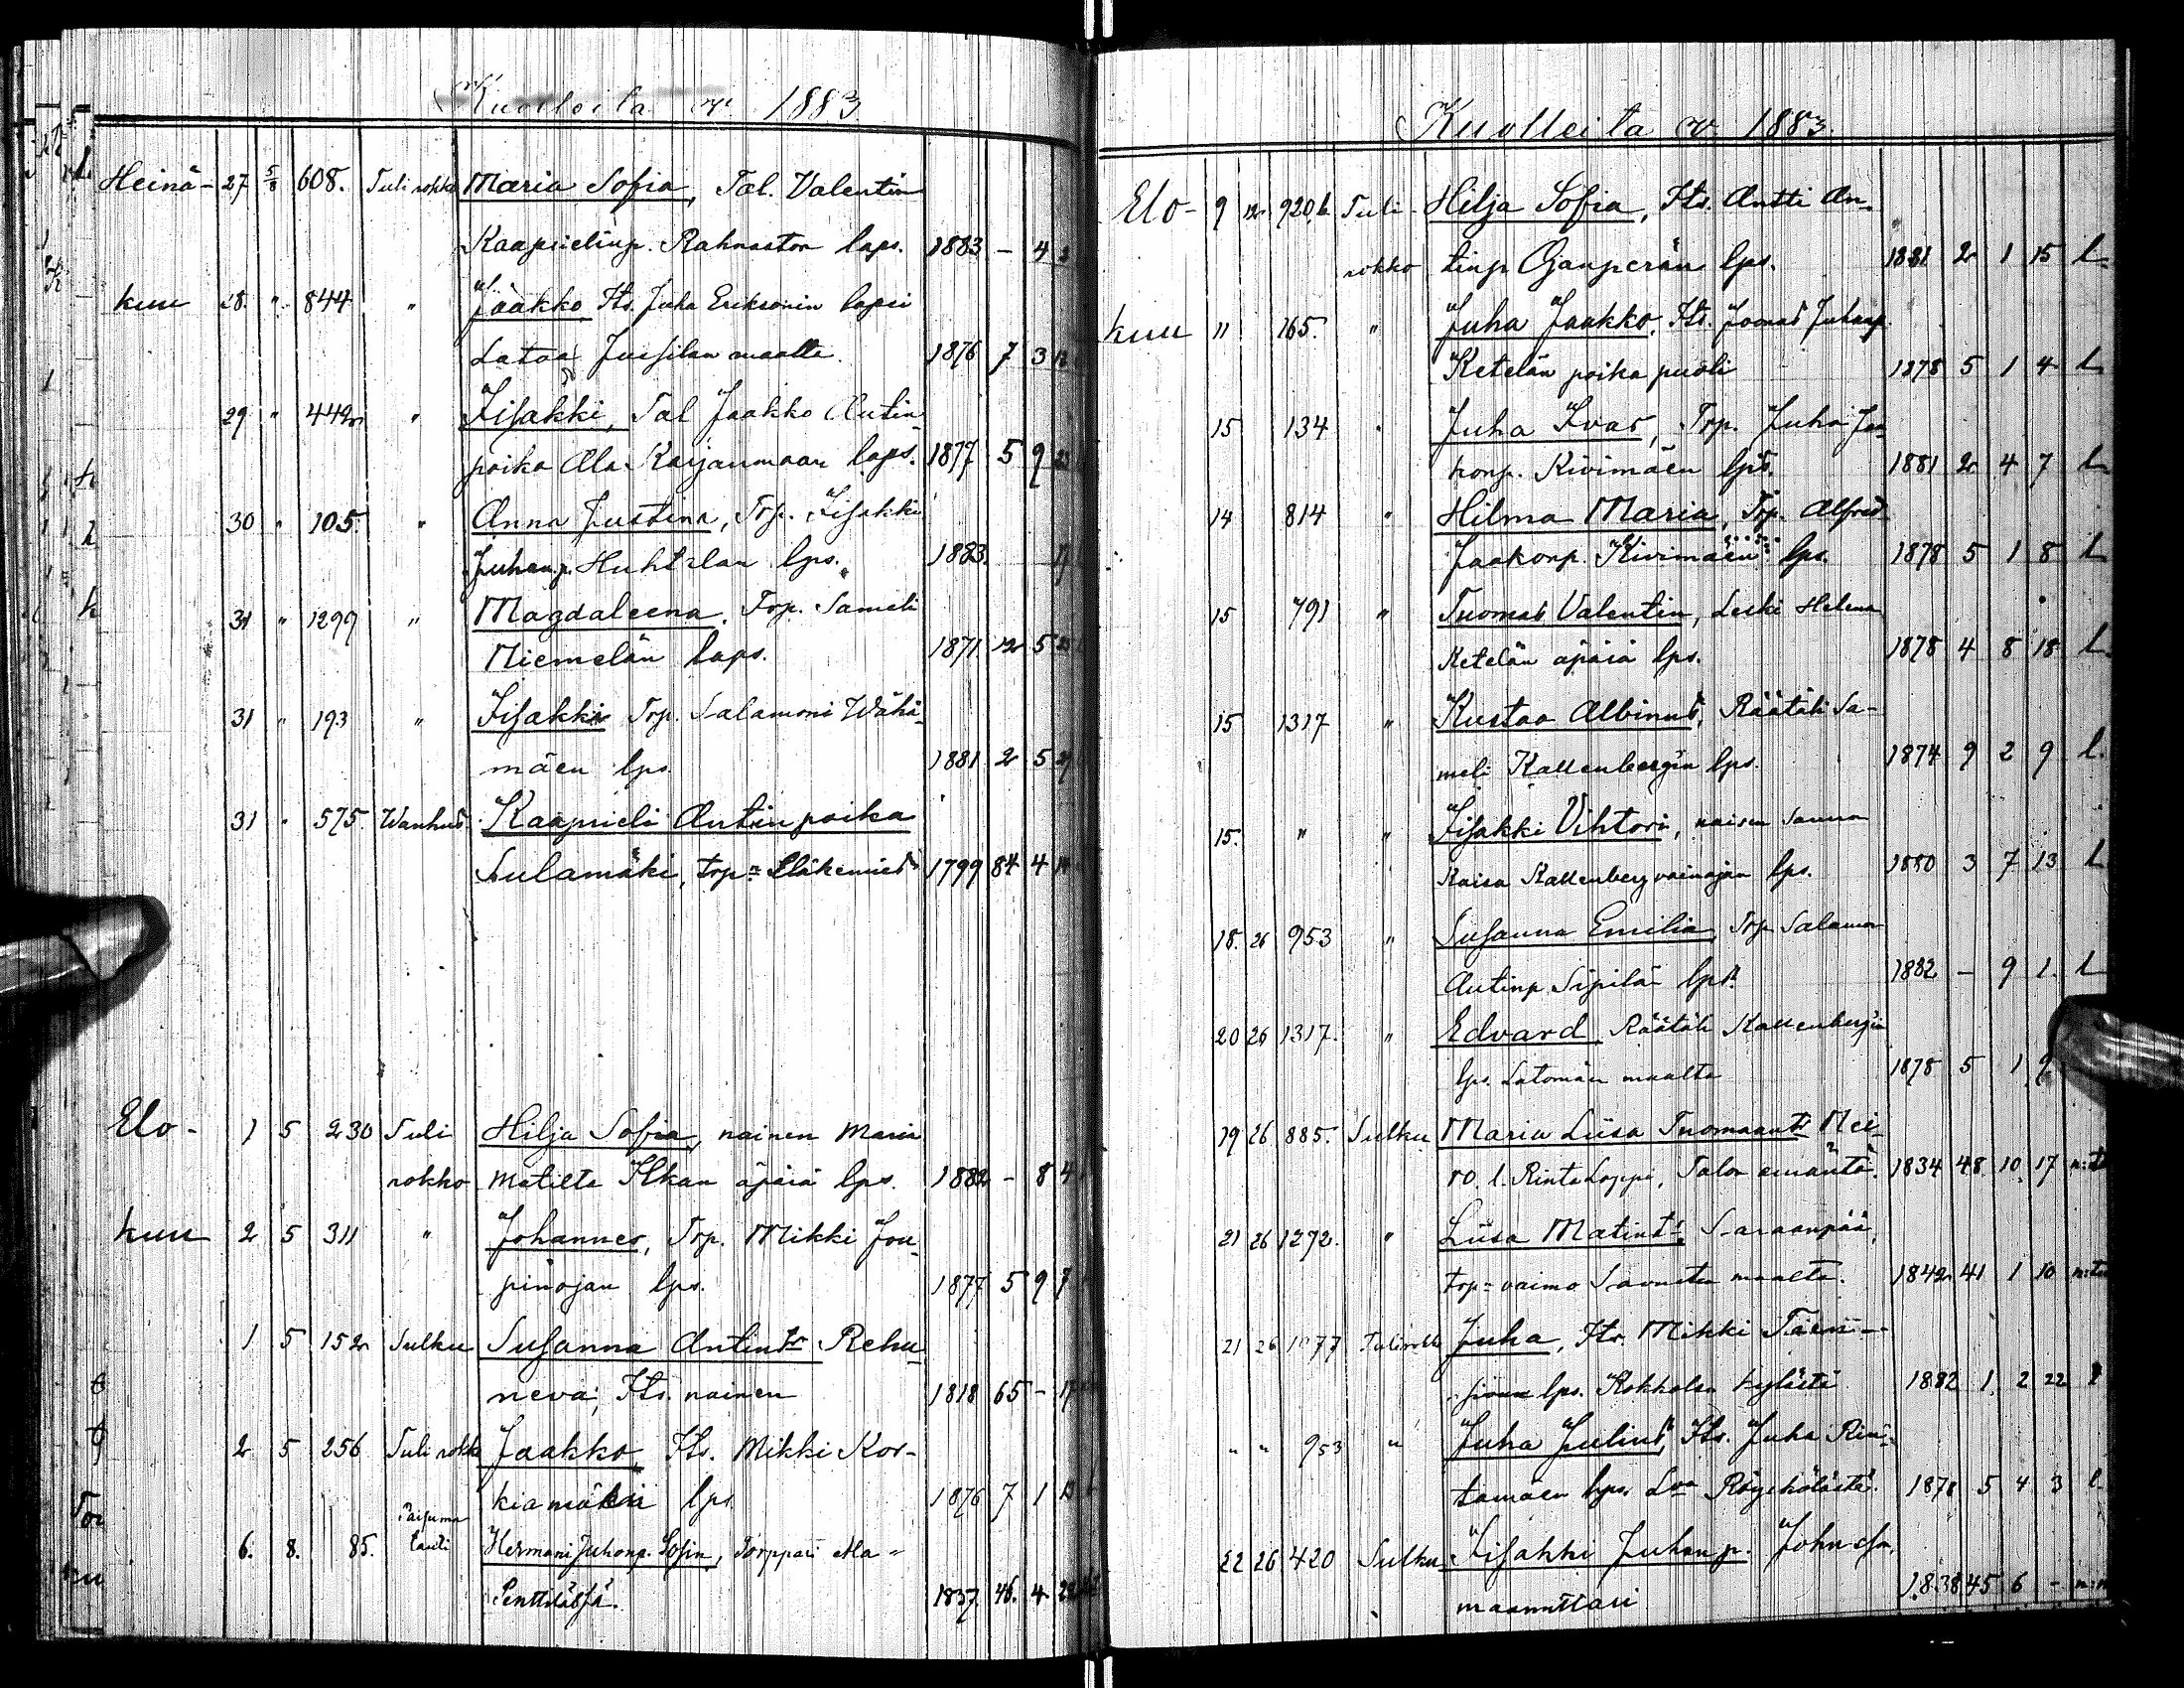 Kuolleita v. 1883
Heinä- 27 5/8 608. Tulirokko Maria Sofia, Tal. Valentin
Kaaprielinp. Rahnaston laps. 1883 - 4
kuu 28. " 844 " Jaakko Its. Juha Eriksonin lapsi
Latoa Jussilan maalta. 1876 7 3
29 " 442 " Iisakki, Tal Jaakko Antin
poika Ala Kaijanmaan laps. 1877 5 9 23
30 " 105. " Anna Justina, Trp. Iisakki
Juhanp. Huhtalan lps. 1883.
31 " 1299 " Magdaleena, Trp. Sameli
Niemelän laps. 1871 12 5
31 " 193 " Iisakki Trp. Salamoni Wähä-
mäen lps. 1881 2 5 27
31 " 575. Wanhuus. Kaaprieli Antinpoika
Sulamäki, trp= eläkemies 1799 84 4
Elo- 1 5 230 Tuli Hilja Sofia, nainen Maria
rokko Matilta Ilkan äpärä lps. 1882 - 8 4
kuu 2 5 311 " Johannes, Trp. Mikki Jou-
pinojan lps. 1877 5 9 7
1 5 152 Sulku Susanna Antint. Rehu-
neva, Its. nainen 1818 65 - 17
2 5 256 Tulirokko Jaakko, Its. Mikki Kor-
kiamäki lps. 1876 7 1
6. 8. 85. tauti Hermani Juhonp. Sofin, Torppari Ala-
Penttilässä. 1837. 46. 4. 28
Kuolleita v. 1883.
Elo- 9 12 920,b Tuli- Hilja Sofia, Its. Antti An-
rokko tinp Ojanperän lps. 1881 2 1 15 l.
kuu 11 165. " Juha Jaakko, Its. Joonas Juhanp.
Ketelän poika puoli 1878 5 1 4 l.
15 134 " Juha Ivar, Trp. Juha Jaa-
konp. Kivimäen lps. 1881 2 4 7 l.
14 814 " Hilma Maria, Trp. Alfred
Jaakonp. Kivimäen lps. 1878 5 1 8 l
15 791 " Tuomas Valentin, Leski Helena
Ketelän äpärä lps. 1878 4 8 18 l.
15 1317 " Kustaa Albinus, Räätäli Sa-
meli Kallenbergin lps. 1874 9 2 9 l.
15. " " Iisakki Vihtori, naisen Sanna
Kaisa Kallenberg vainajan lps. 1880 3 7 13 l
18. 26 953 " Susanna Emilia Trp Salamon
Antinp. Sipilän lps. 1882 - 9 1. l
20 26 1317. " Edvard Räätäli Kallenbergin
lps. Latomäen maalta 1878 5 1 9
19 26 885. Sulku Maria Liisa Tuomaant. Mei-
ro, l. Rinta Loppi, Talon emäntä. 1834 48 10 17
21 26 1272. " Liisa Matint. Saraanpää,
trp= vaimo maalta. 1842 41 1 10
21 26 1077 Tulirokko Juha, Its. Mikki
lps. Kokkolan kylästä 1882 1. 2 22 l
" " 953 " Juha Julius, Its. Juha Rin-
tamäen lps. 1878 5 4 3 l.
22 26 420 Sulku Iisakki Juhanp. Johnsson,
maanmittari 1838 45 6 -